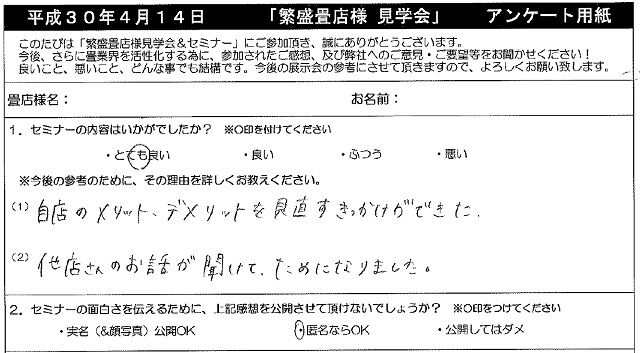 平成30年4月14日 「繁盛畳店様 見学会」 アンケート用紙
このたびは「繁盛畳店様見学会＆セミナー」にご参加頂き、誠にありがとうございます。
今後、さらに畳業界を活性化する為に、参加されたご感想、及び弊社へのご意見・ご要望等をお聞かせください！
良いこと、悪いこと、どんな事でも結構です。今後の展示会の参考にさせて頂きますので、よろしくお願い致します。
畳店様名： お名前：
1．セミナーの内容はいかがでしたか？ ※〇印を付けてください
・とても良い ・良い ・ふつう ・悪い
※今後の参考のために、その理由を詳しくお教えください。
(1) 自店のメリット、デメリットを見直すきっかけができた。
(2) 他店さんのお話が聞けて、ためになりました。
2．セミナーの面白さを伝えるために、上記感想を公開させて頂けないでしょうか？ ※〇印をつけてください
・実名（&顔写真）公開OK ・匿名ならOK ・公開してはダメ